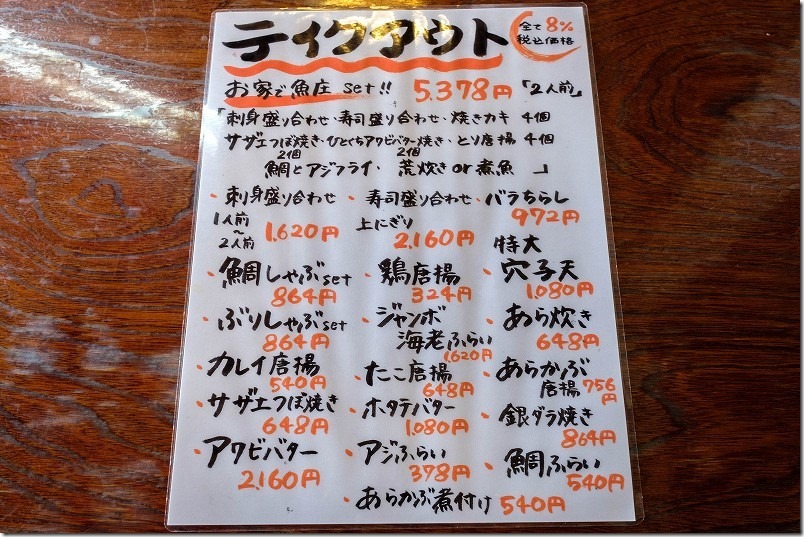 テイクアウト 全て8%税込価格
お家で魚庄 set!! 5.378円「2人前」
「刺身盛り合わせ・寿司盛り合わせ・焼きカキ 4個
サザエつぼ焼き・ひとくちアワビバター焼き・とり唐揚 4個
2個 2個
鯛とアジフライ・荒炊き or 煮魚 」
・刺身盛り合わせ ・寿司盛り合わせ ・バラちらし
1人前〜2人前 1,620円 上にぎり 2,160円 972円
特大
・鯛しゃぶset ・鶏唐揚 ・穴子天
864円 324円 1,080円
・ぶりしゃぶset ・ジャンボ海老ふらい ・あら炊き
864円 1,620円 648円
・カレイ唐揚 ・たこ唐揚 ・あらかぶ唐揚
540円 648円 756円
・サザエつぼ焼き ・ホタテバター ・銀ダラ焼き
648円 1,080円 864円
・アワビバター ・アジふらい ・鯛ふらい
2,160円 378円 540円
・あらかぶ煮付け 540円